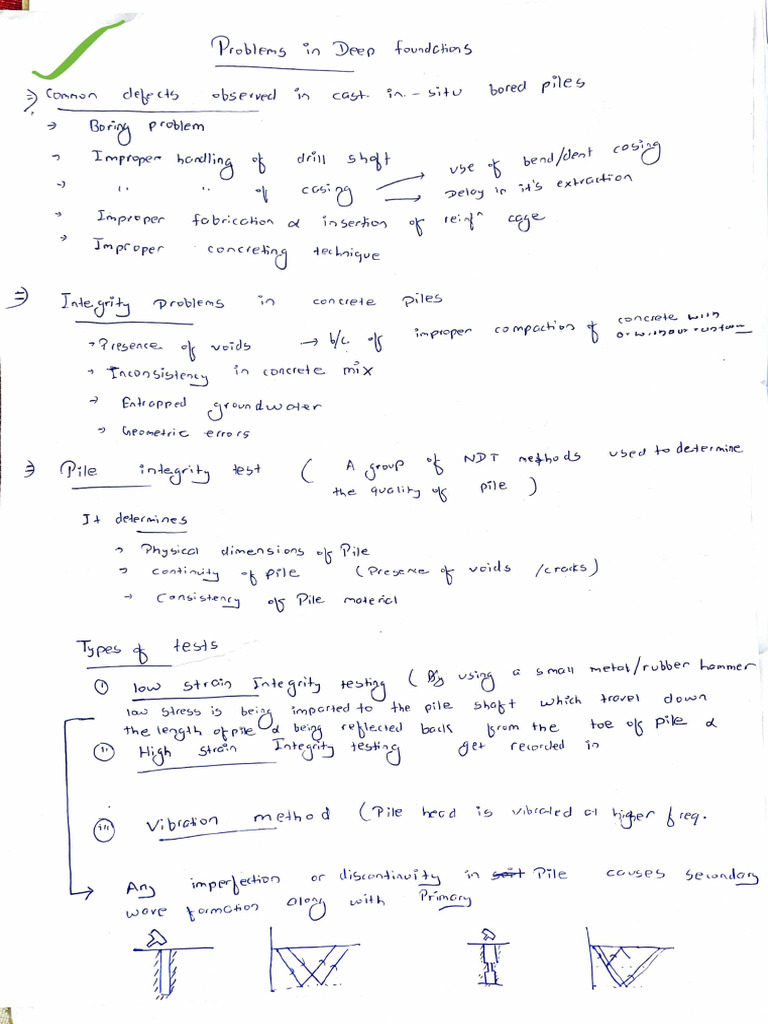 Problems in Deep foundations
=> Common defects observed in cast-in-situ bored piles
→ Boring problem
→ Improper handling of drill shaft
→ " " of casing → use of bend/dent casing
→ Delay in it's extraction
→ Improper fabrication & insertion of reinfⁿ cage
→ Improper concreting technique
=> Integrity problems in concrete piles
→ Presence of voids → b/c of improper compaction of concrete with
or without
→ Inconsistency in concrete mix
→ Entrapped groundwater
→ Geometric errors
=> Pile integrity test ( A group of NDT methods used to determine
the quality of pile )
It determines
→ Physical dimensions of Pile
→ continuity of pile (Presence of voids /cracks)
→ Consistency of Pile material
Types of tests
(i) low strain Integrity testing ( By using a small metal/rubber hammer
low stress is being imparted to the pile shaft which travel down
the length of pile & being reflected back from the toe of pile &
(ii) High strain Integrity testing get recorded in
(iii) Vibration method (Pile head is vibrated at higher freq.
→ Any imperfection or discontinuity in Pile causes secondary
wave formation along with Primary